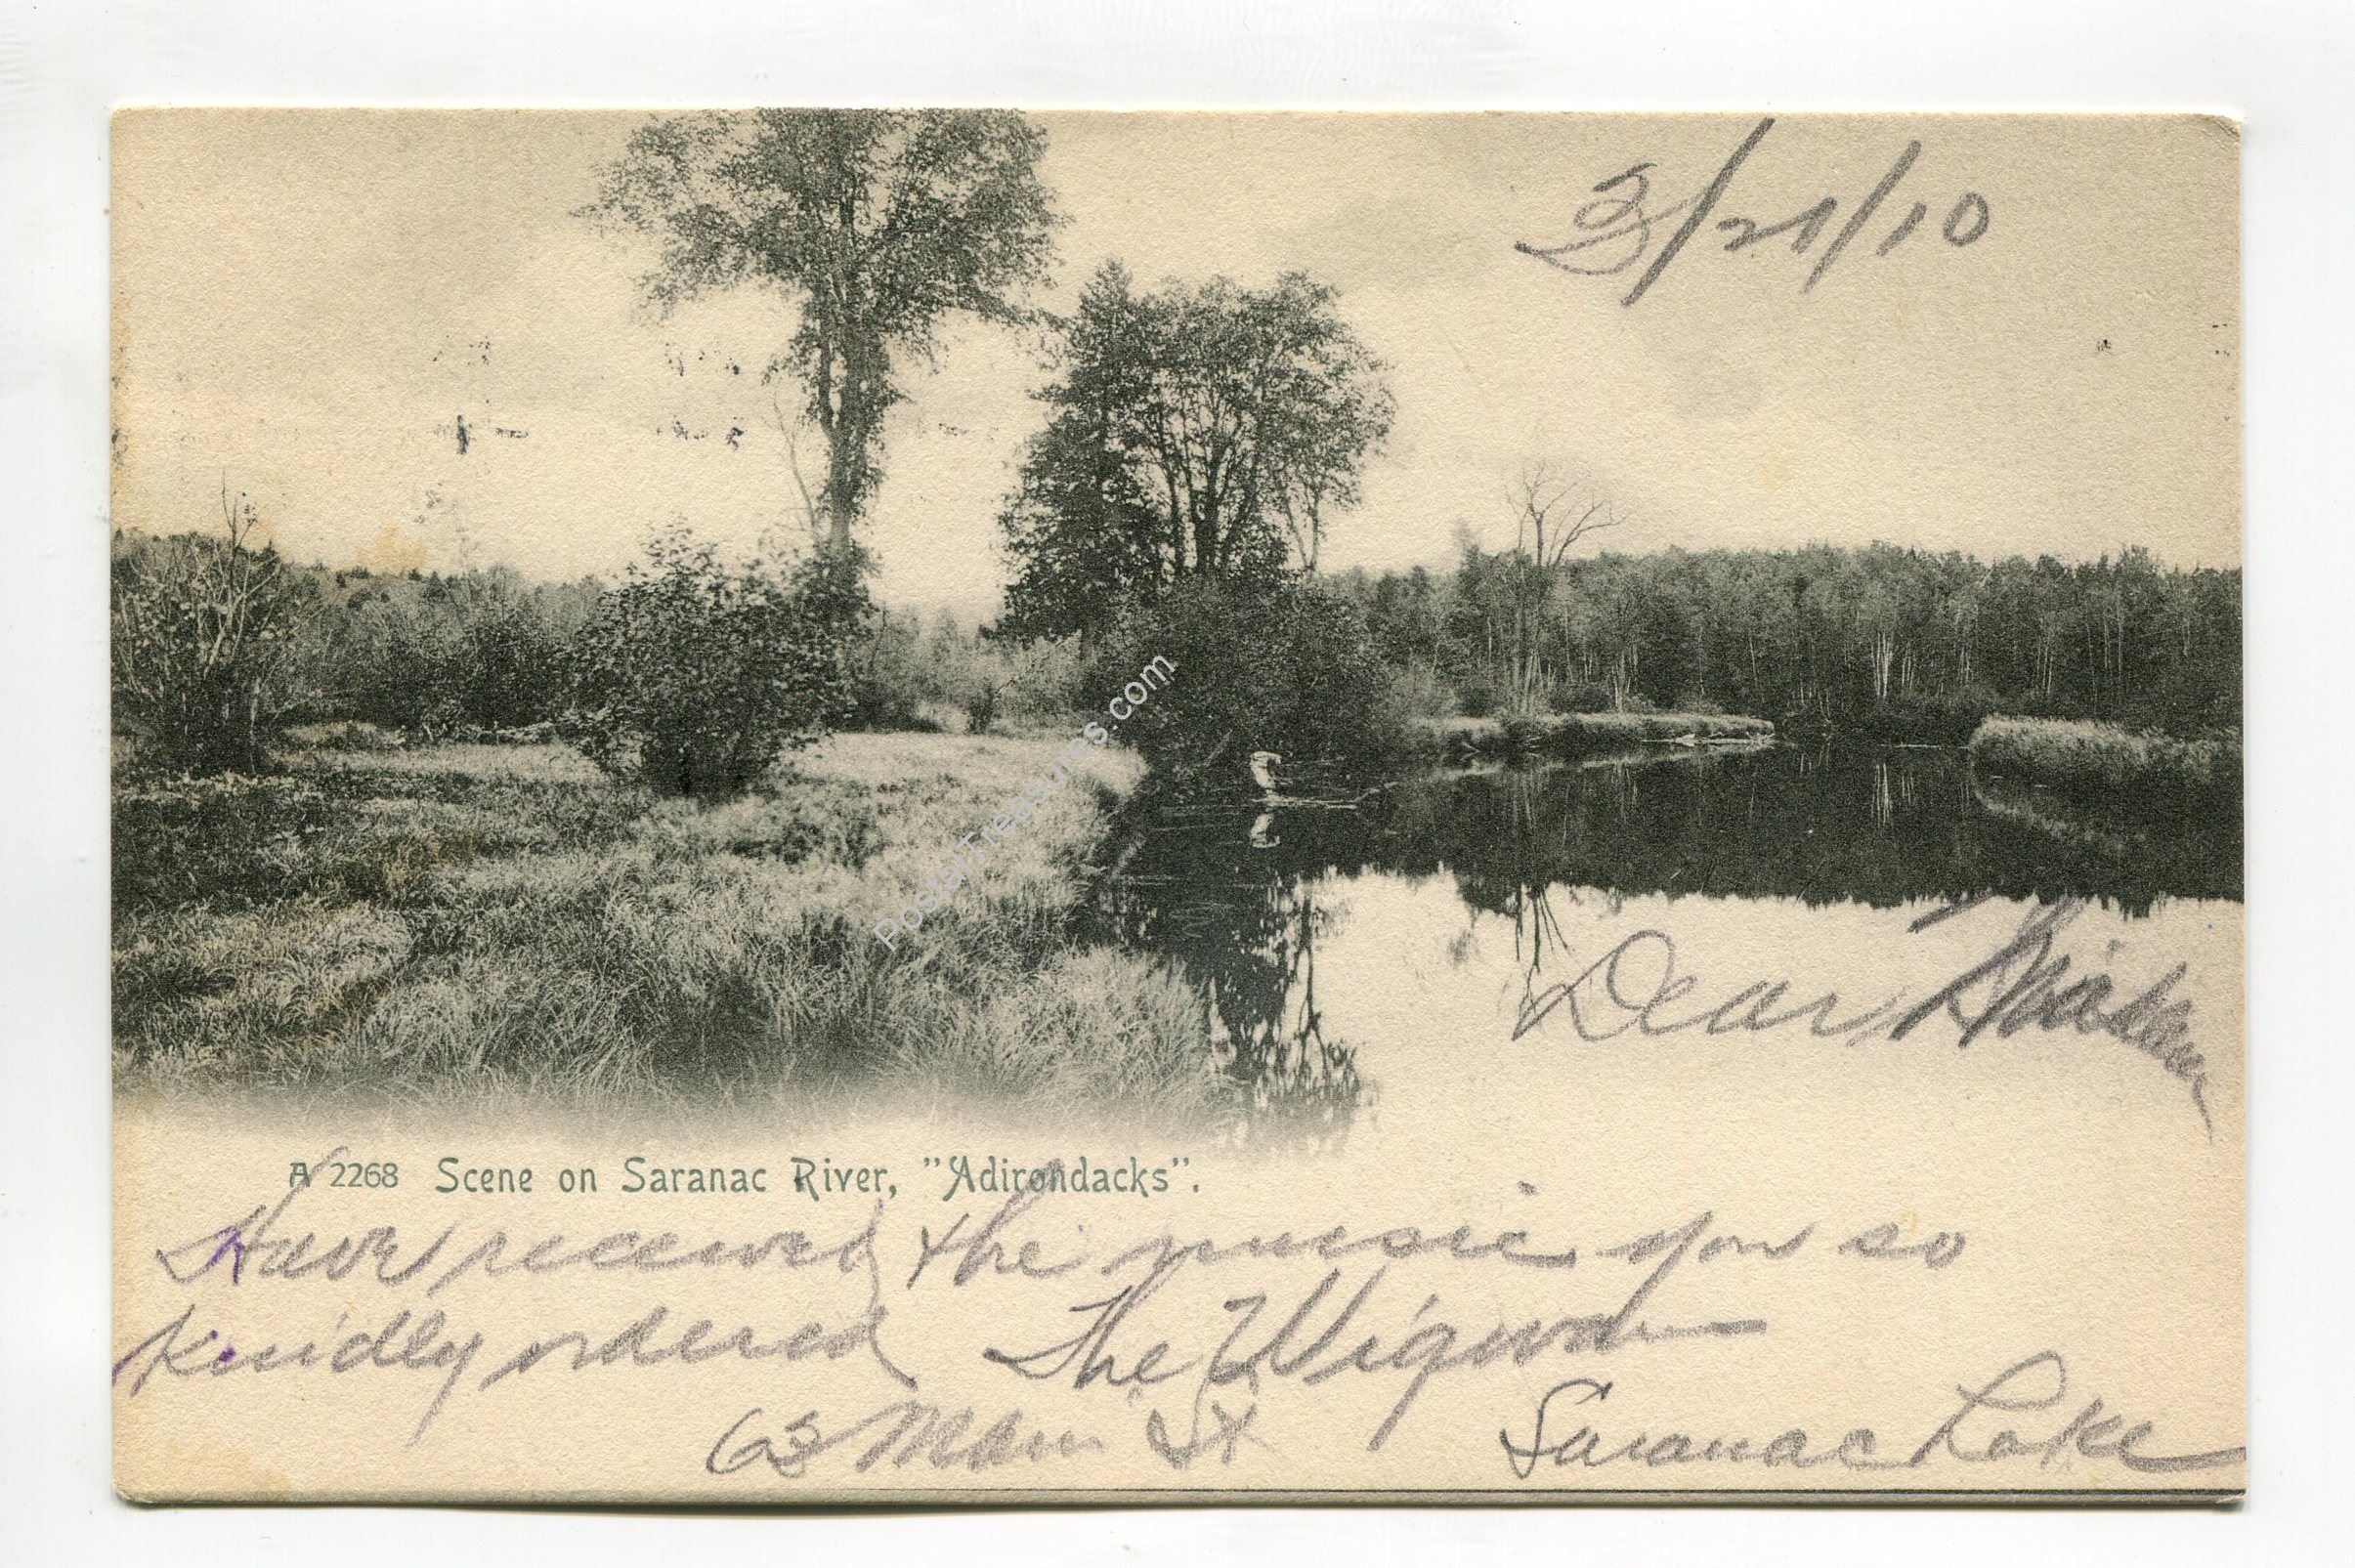 3/21/10
Dear
PostalTreasures.com
A 2268 Scene on Saranac River, "Adirondacks".
Have received the music you so
kindly ordered The Wigwam
63 Main St Saranac Lake